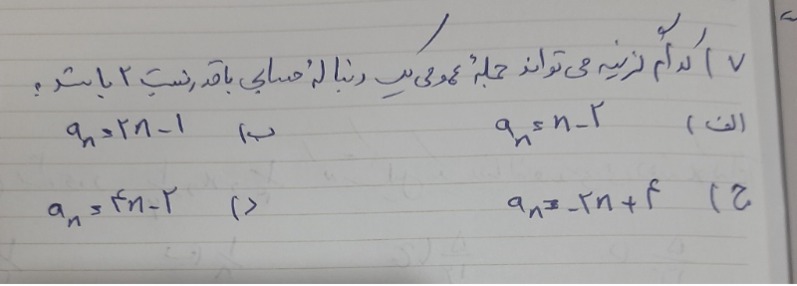 ۷) کدام گزینه می‌تواند جملهٔ عمومی یک دنبالهٔ حسابی با قدر نسبت ۲ باشد؟
الف) aₙ = n - ۲ ب) aₙ = ۲n - 1
ج) aₙ = -۲n + ۴ د) aₙ = ۴n - ۲